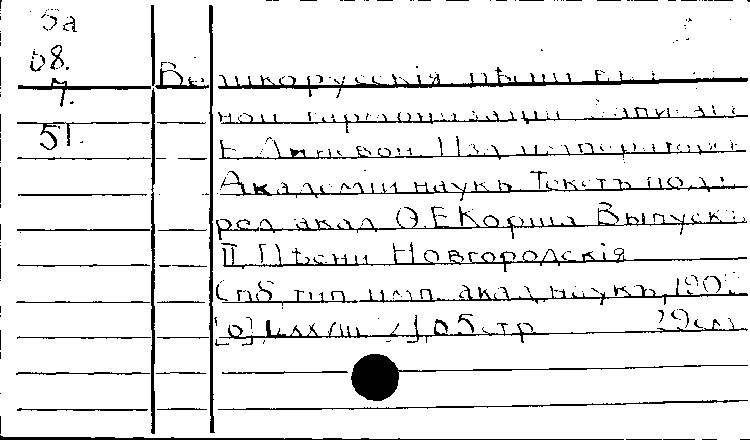 5а
08.
7.
51.
Великорусскія пѣсни въ
ной гармонизаціи Записаны
Е Линевой Изд император
Академіи наукъ Текстъ подъ
ред акад Ѳ.Е.Корша Выпускъ
II. Пѣсни Новгородскія
Спб, тип. имп. акад. наукъ,
65 стр 29см